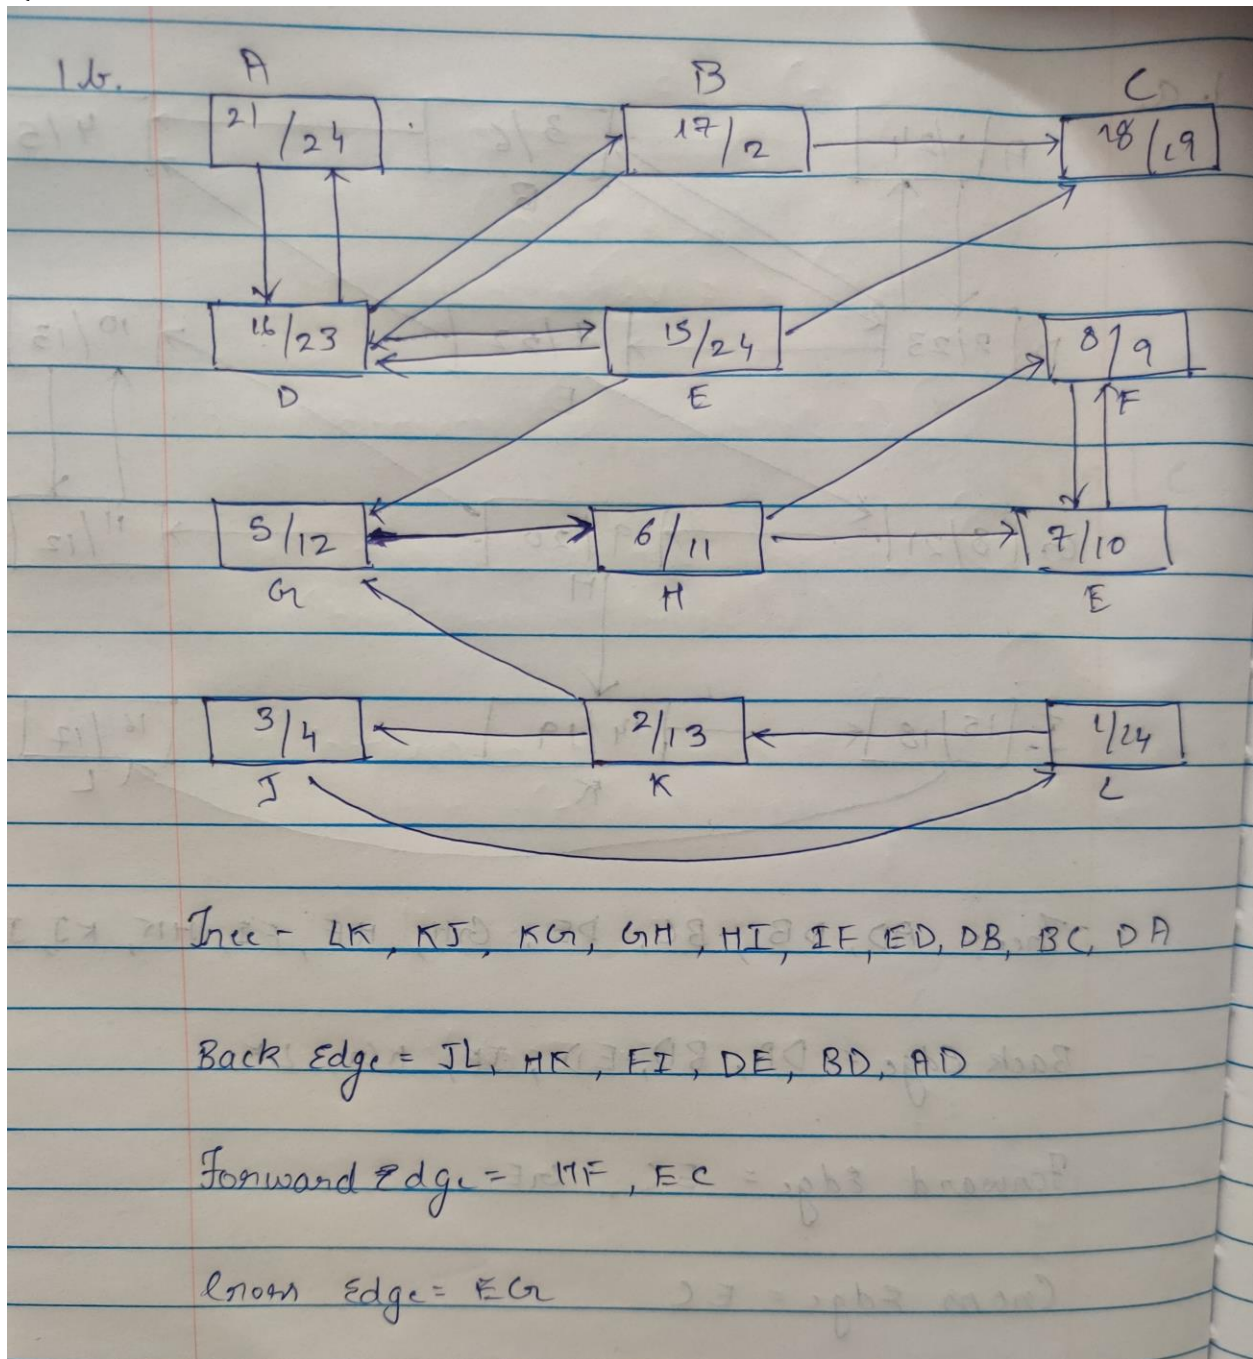 1.b.
A B C
21/24 17/2 18/19
16/23 15/24 8/9
D E F
5/12 6/11 7/10
G H E
3/4 2/13 1/24
J K L
Tree - LK, KJ, KG, GH, HI, IF, ED, DB, BC, DA
Back Edge = JL, HK, FI, DE, BD, AD
Forward Edge = HF, EC
Cross Edge = EG